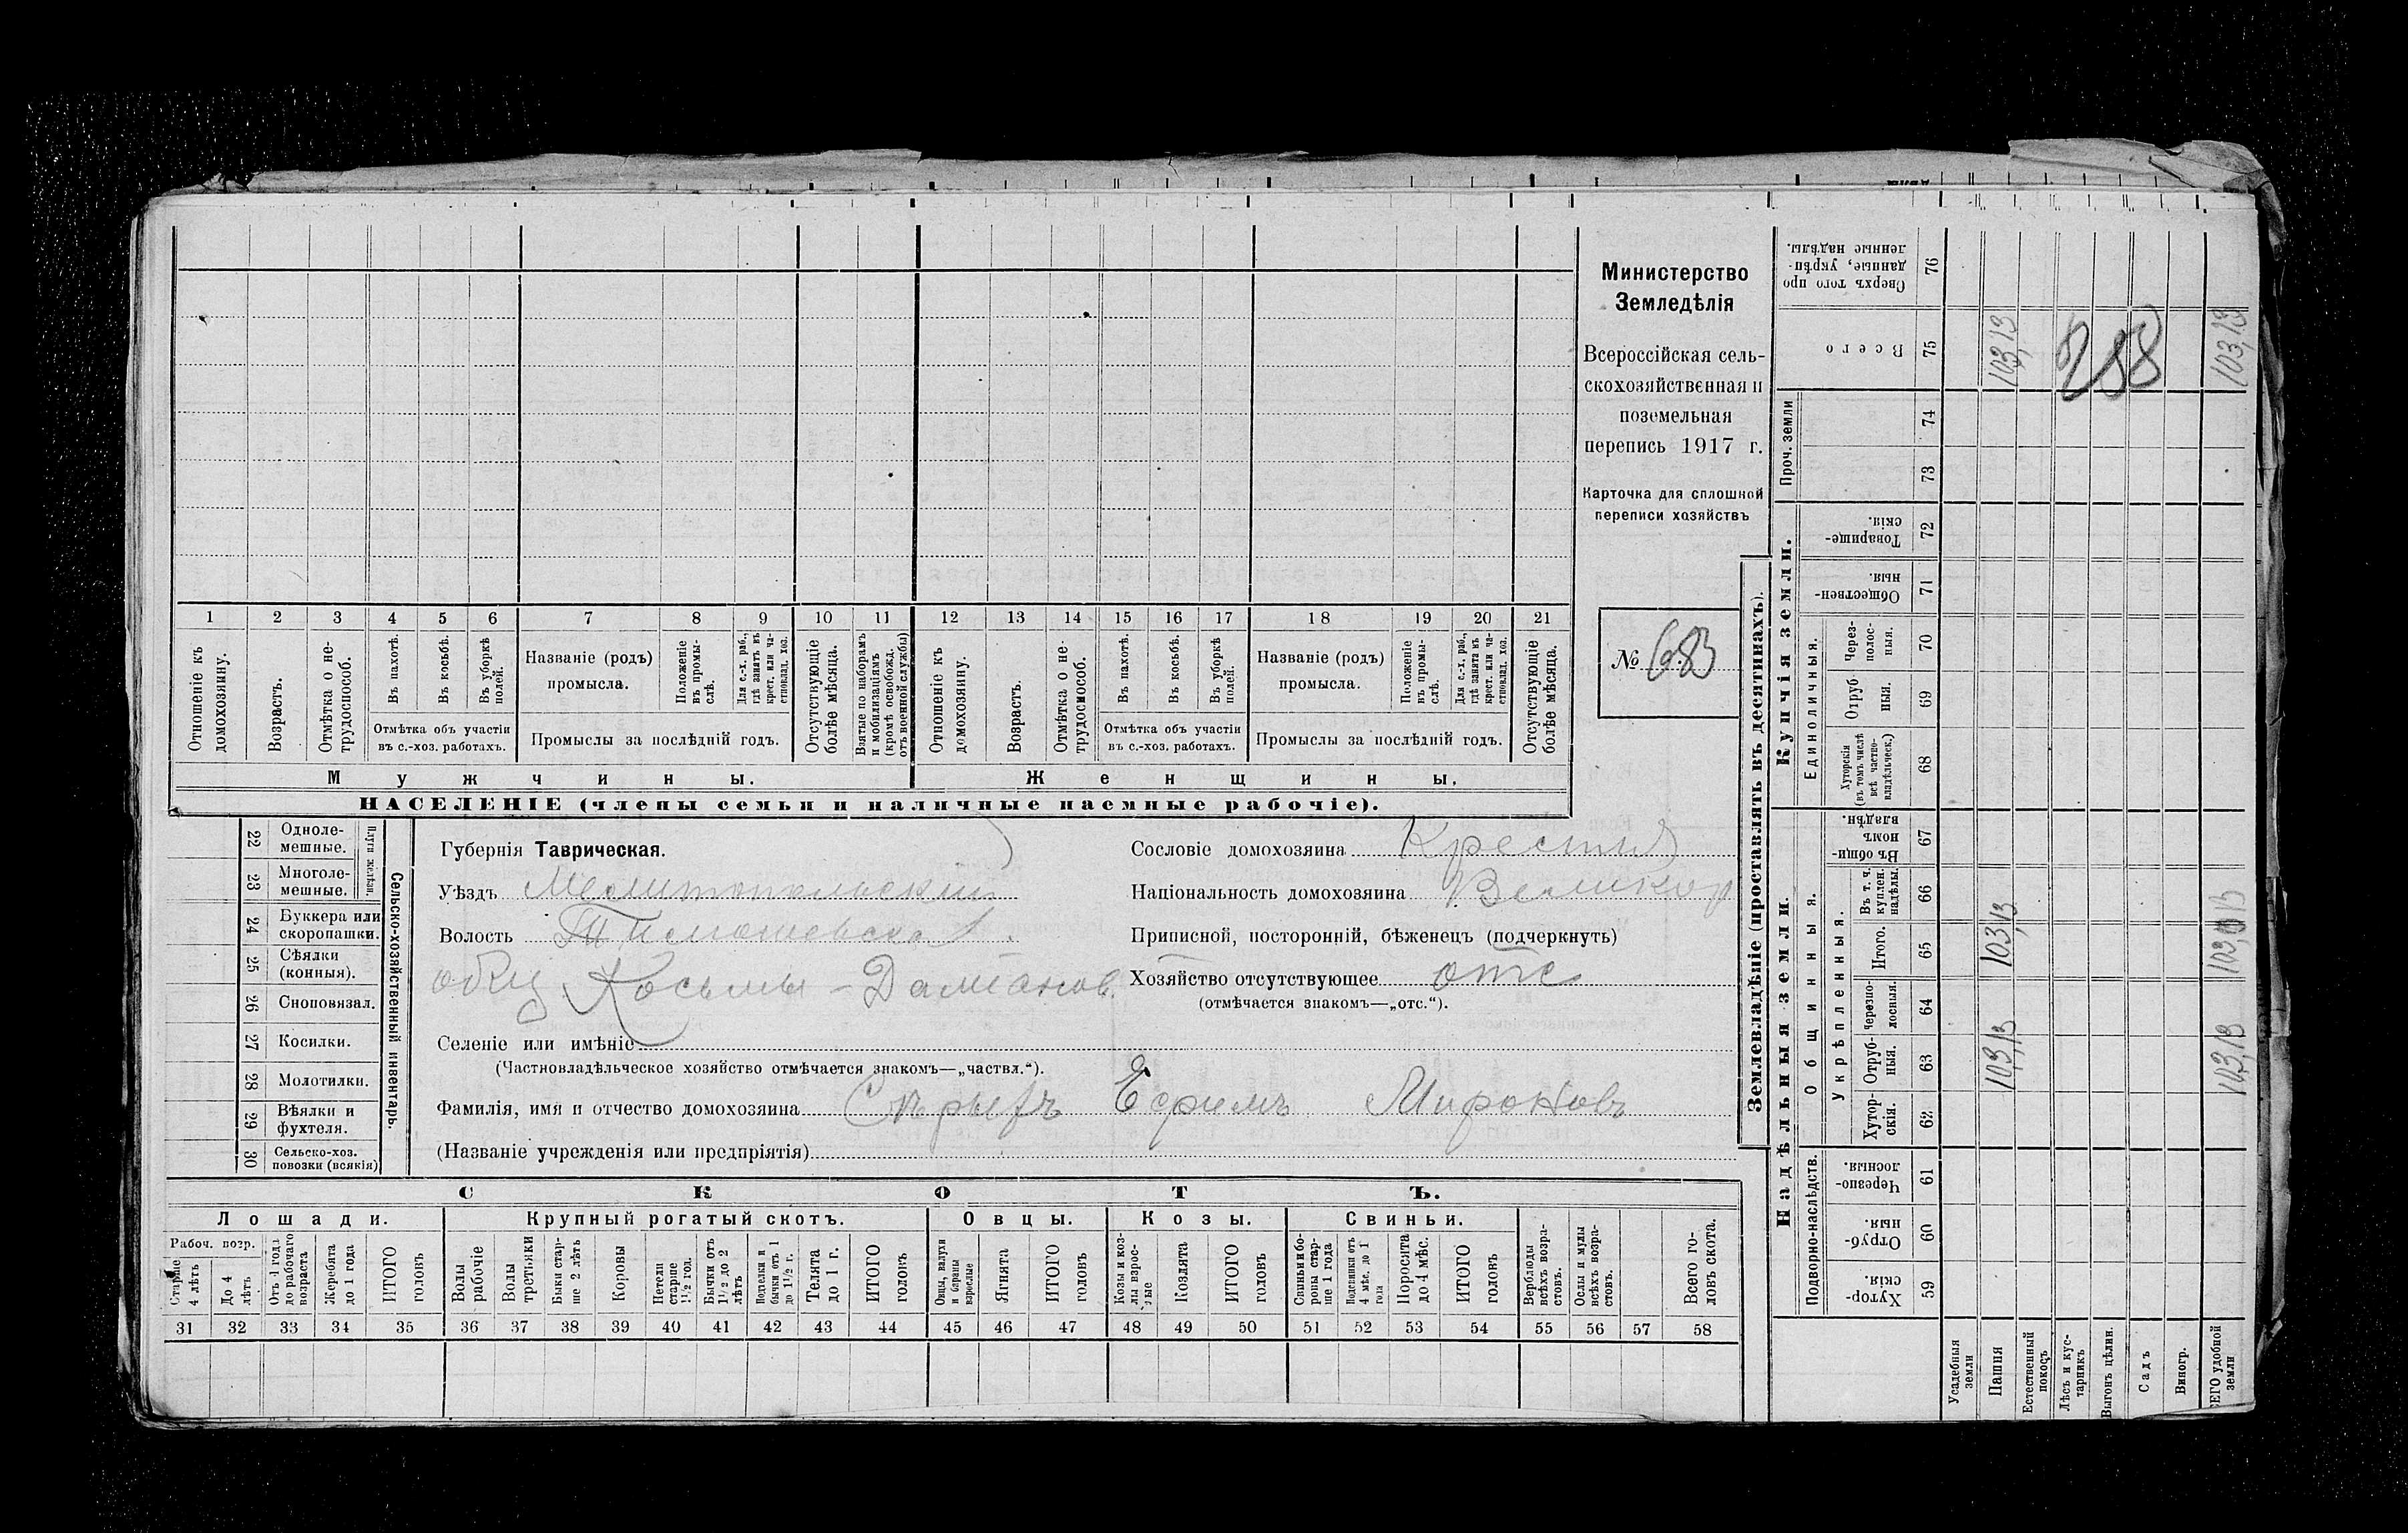 Министерство
Земледѣлія
Всероссійская сель-
скохозяйственная и
поземельная
перепись 1917 г.
Карточка для сплошной
переписи хозяйствъ
№ 683
1 2 3 4 5 6 7 8 9 10 11 12 13 14 15 16 17 18 19 20 21
Отношеніе къ домохозяину.
Возрастъ.
Отмѣтка о не-трудоспособ.
Въ пахотѣ.
Въ косьбѣ.
Въ уборкѣ полей.
Отмѣтка объ участіи
въ с.-хоз. работахъ.
Названіе (родъ)
промысла.
Положеніе въ промы-слѣ.
Для с.-х. раб., гдѣ занятъ въ крест. или ча-стновлад. хоз.
Промыслы за послѣдній годъ.
Отсутствующіе болѣе мѣсяца.
Взятые по наборамъ и мобилизаціямъ (кромѣ освобожд. отъ военной службы)
Отношеніе къ домохозяину.
Возрастъ.
Отмѣтка о не-трудоспособ.
Въ пахотѣ.
Въ косьбѣ.
Въ уборкѣ полей.
Отмѣтка объ участіи
въ с.-хоз. работахъ.
Названіе (родъ)
промысла.
Положеніе въ промы-слѣ.
Для с.-х. раб., гдѣ занята въ крест. или ча-стновлад. хоз.
Промыслы за послѣдній годъ.
Отсутствующіе болѣе мѣсяца.
Мужчины.
Женщины.
НАСЕЛЕНІЕ (члены семьи и наличные наемные рабочіе).
22 Одноле-мешные.
23 Многоле-мешные.
Плуги желѣзн.
24 Буккера или скоропашки.
25 Сѣялки (конныя).
26 Сноповязал.
27 Косилки.
28 Молотилки.
29 Вѣялки и фухтеля.
30 Сельско-хоз. повозки (всякія)
Сельско-хозяйственный инвентарь.
Губернія Таврическая.
Уѣздъ Мелитопольский
Волость Тимошевская
общ Косьмы-Даміанов.
Селеніе или имѣніе
(Частновладѣльческое хозяйство отмѣчается знакомъ—„частвл.“).
Фамилія, имя и отчество домохозяина Ефимъ Мироновъ
(Названіе учрежденія или предпріятія)
Сословіе домохозяина Крестья
Національность домохозяина Великор
Приписной, посторонній, бѣженецъ (подчеркнуть)
Хозяйство отсутствующее отс
(отмѣчается знакомъ—„отс.“).
СКОТЪ.
Лошади.
Крупный рогатый скотъ.
Овцы.
Козы.
Свиньи.
Рабоч. возр.
Старше 4 лѣтъ
До 4 лѣтъ
Отъ 1 года до рабочаго возраста
Жеребята до 1 года
ИТОГО головъ
Волы рабочіе
Волы третьяки
Быки стар-ше 2 лѣтъ
Коровы
Нетели старше 1½ год.
Бычки отъ 1½ до 2 лѣтъ
Подтелки и бычки отъ 1 до 1½ г.
Телята до 1 г.
ИТОГО головъ
Овцы, валухи и бараны взрослые
Ягнята
ИТОГО головъ
Козы и коз-лы взрос-лые
Козлята
ИТОГО головъ
Свиньи и бо-ровы стар-ше 1 года
Подсвинки отъ 4 мѣс. до 1 года
Поросята до 4 мѣс.
ИТОГО головъ
Верблюды всѣхъ возра-стовъ.
Ослы и мулы всѣхъ возра-стовъ.
Всего го-ловъ скота.
31 32 33 34 35 36 37 38 39 40 41 42 43 44 45 46 47 48 49 50 51 52 53 54 55 56 57 58
Землевладѣніе (проставлять въ десятинахъ).
Надѣльныя земли.
Купчія земли.
Проч. земли
Подворно-наслѣдств.
Общинныя.
Укрѣпленныя.
Единоличныя.
Хутор-скія. 59
Отруб-ныя. 60
Черезпо-лосныя. 61
Хутор-скія. 62
Отруб-ныя. 63
Черезпо-лосныя. 64
Итого. 65
Въ т. ч. куплен. надѣлы. 66
Въ общин-номъ владѣн. 67
Хуторскія (въ томъ числѣ всѣ частно-владѣльческ.) 68
Отруб-ныя. 69
Через-полос-ныя. 70
Обществен-ныя. 71
Товарище-скія. 72
73
74
Всего 75
Сверхъ того про-данные, укрѣп-ленные надѣлы. 76
Усадебныя земли
Пашня
103,13 103,13 103,13
Естественный покосъ
Лѣсъ и кус-тарникъ
Выгонъ цѣлин.
Садъ
Виногр.
ЕГО удобной земли
103,13 103,13 103,13
288